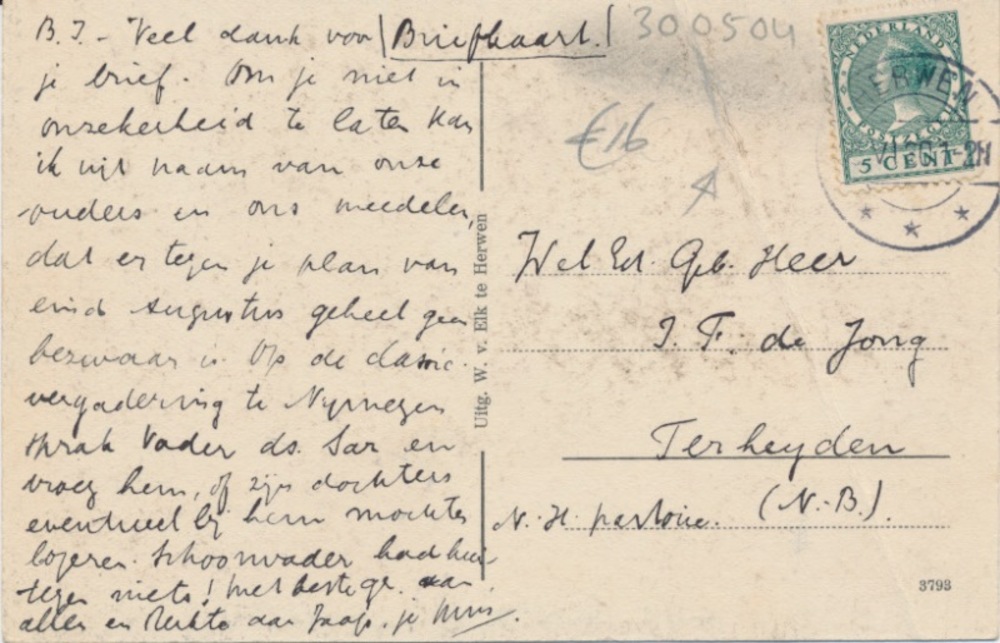 B.J. - Veel dank voor
je brief. Om je niet in
onzekerheid te laten kan
ik uit naam van onze
ouders en ons meedelen,
dat er tegen je plan van
eind Augustus geheel geen
bezwaar is. Op de classic.
vergadering te Nijmegen
sprak Vader ds. Sar en
vroeg hem, of zijn dochters
eventueel bij hem mochten
logeren. Schoonvader had
tegen niets! Met beste gr. aan
allen en sterkte aan Jaap. je
Briefkaart.
300504
€16
NEDERLAND
POSTZEGEL
5 CENT
HERWEN
Uitg. W. v. Elk te Herwen
Wel Ed. Geb. Heer
J. F. de Jong
Terheyden
(N.-B.).
N.-H. pastorie.
3793